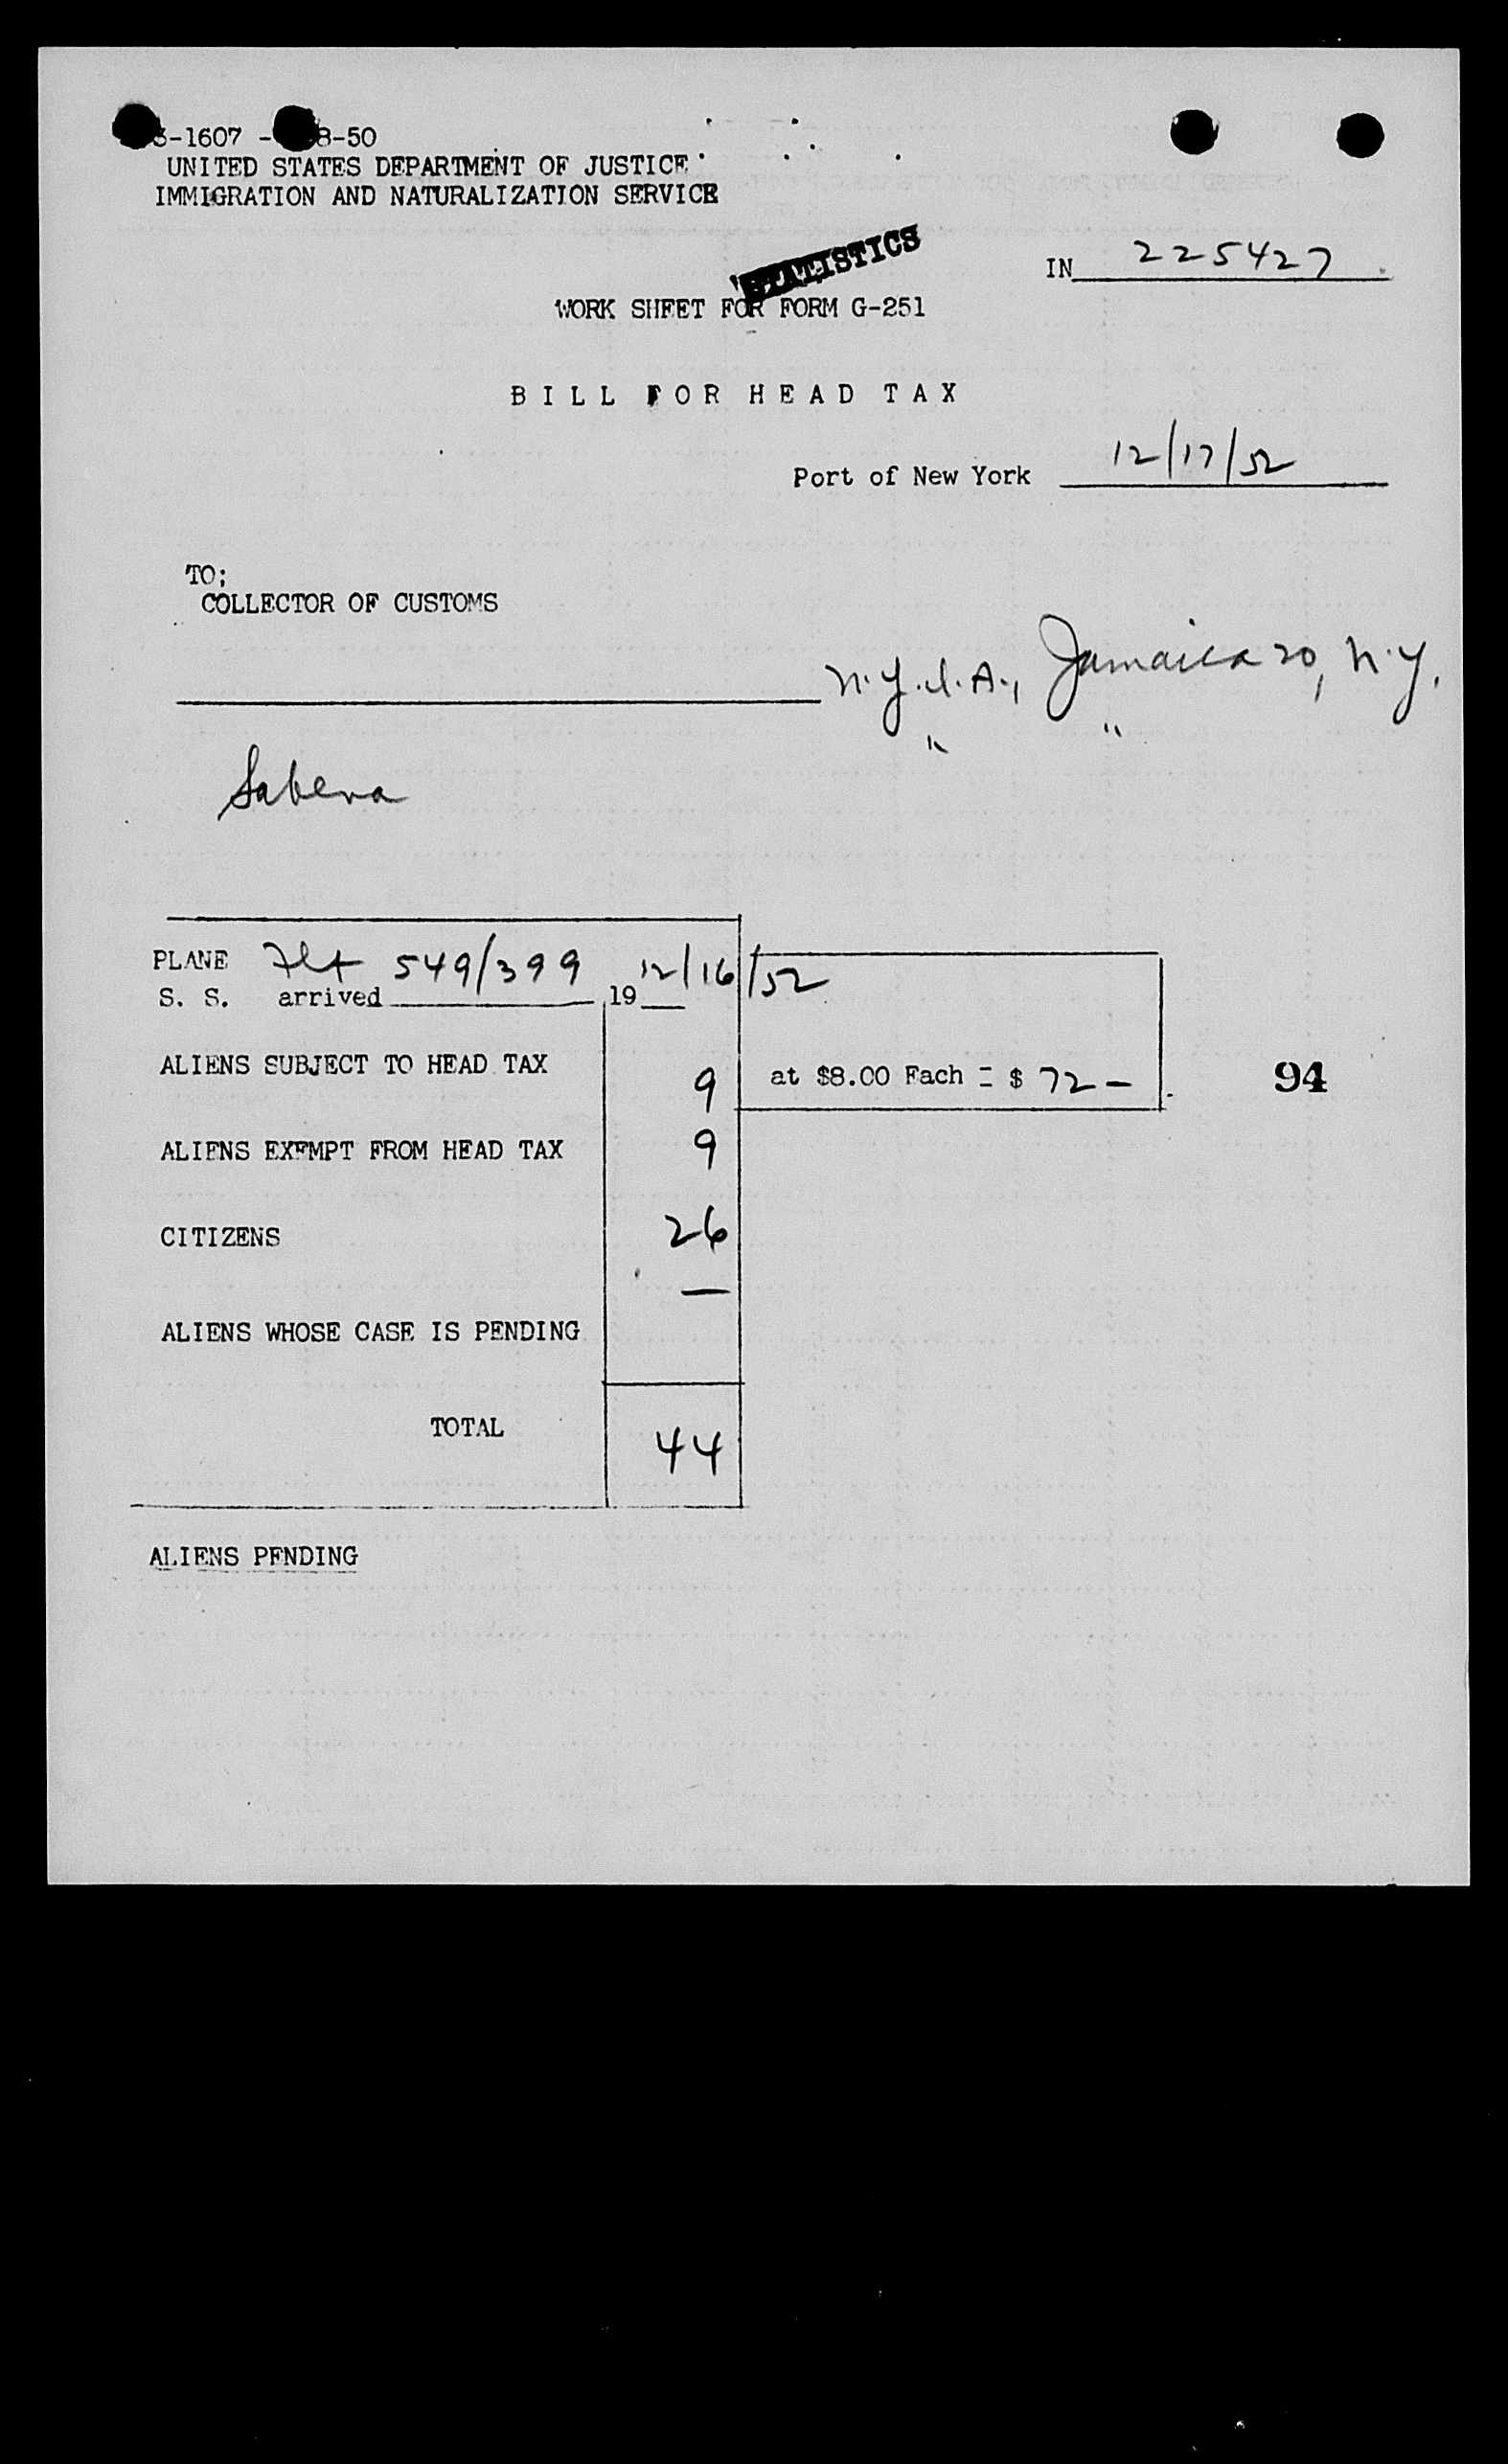 3-1607 - 8-50
UNITED STATES DEPARTMENT OF JUSTICE
IMMIGRATION AND NATURALIZATION SERVICE
STATISTICS
IN 225427
WORK SHEET FOR FORM G-251
BILL FOR HEAD TAX
Port of New York 12/17/52
TO;
COLLECTOR OF CUSTOMS
N.Y.I.A., Jamaica 20, N.Y.
" "
Sabena
PLANE Flt 549/399 12/16/52
S. S. arrived 19
ALIENS SUBJECT TO HEAD TAX 9 at $8.00 Each = $ 72 - 94
ALIENS EXEMPT FROM HEAD TAX 9
CITIZENS 26
—
ALIENS WHOSE CASE IS PENDING
TOTAL 44
ALIENS PENDING